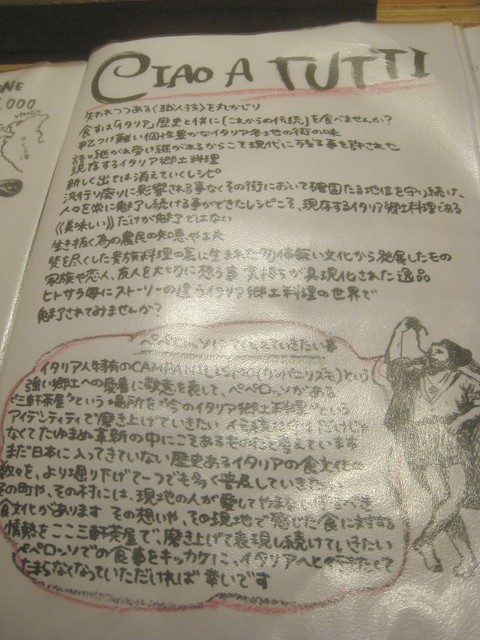 NE
,000
CIAO A TUTTI
失われつつある《職人技》を丸かじり
食すは「イタリア」歴史と共に《これからの伝統》を食べませんか?
軽つけ難い個性豊かなイタリア各地の街の味
語り継がれ受け継がれるからこそ現代に存する事を許された
現存するイタリア郷土料理
新しく出ては消えていくレシピ
流行り廃りに影響される事なくその街において確固たる地位を守り続け、
人々を常に魅了し続ける事ができたレシピこそ、現存するイタリア郷土料理である
《美味しい》だけが魅了ではない
生き抜く為の農民の知恵や工夫
贅を尽くした貴族料理の裏に生まれた勿体無い文化から発展したもの
家族や恋人、友人を大切に想う事 気持ちが具現化された逸品
ヒトサラ毎にストーリーの違うイタリア郷土料理の世界で
魅了されてみませんか?
ペペロッソにて伝えていきたい事
イタリア人特有のCAMPANILISMO(カンパニリズモ)という
強い郷土への愛着に敬意を表して、ペペロッソがある
"三軒茶屋"という場所を"今のイタリア郷土料理"という
アイデンティティで磨き上げていきたい
なくてたゆまぬ革新の中にこそあるものだと考えています
まだ日本に入ってきていない歴史あるイタリアの食文化
数々を、より掘り下げて一つでも多く普及していきた
の町や、その村には、現地の人が愛してやまない べき
食文化があります その想いや、その現地で感じた食に対する
情熱をここ三軒茶屋で、磨き上げて表現し続けていきたい
ペペロッソでの食事をキッカケに、イタリアへと たくて
たまらなくなっていただければ幸いです